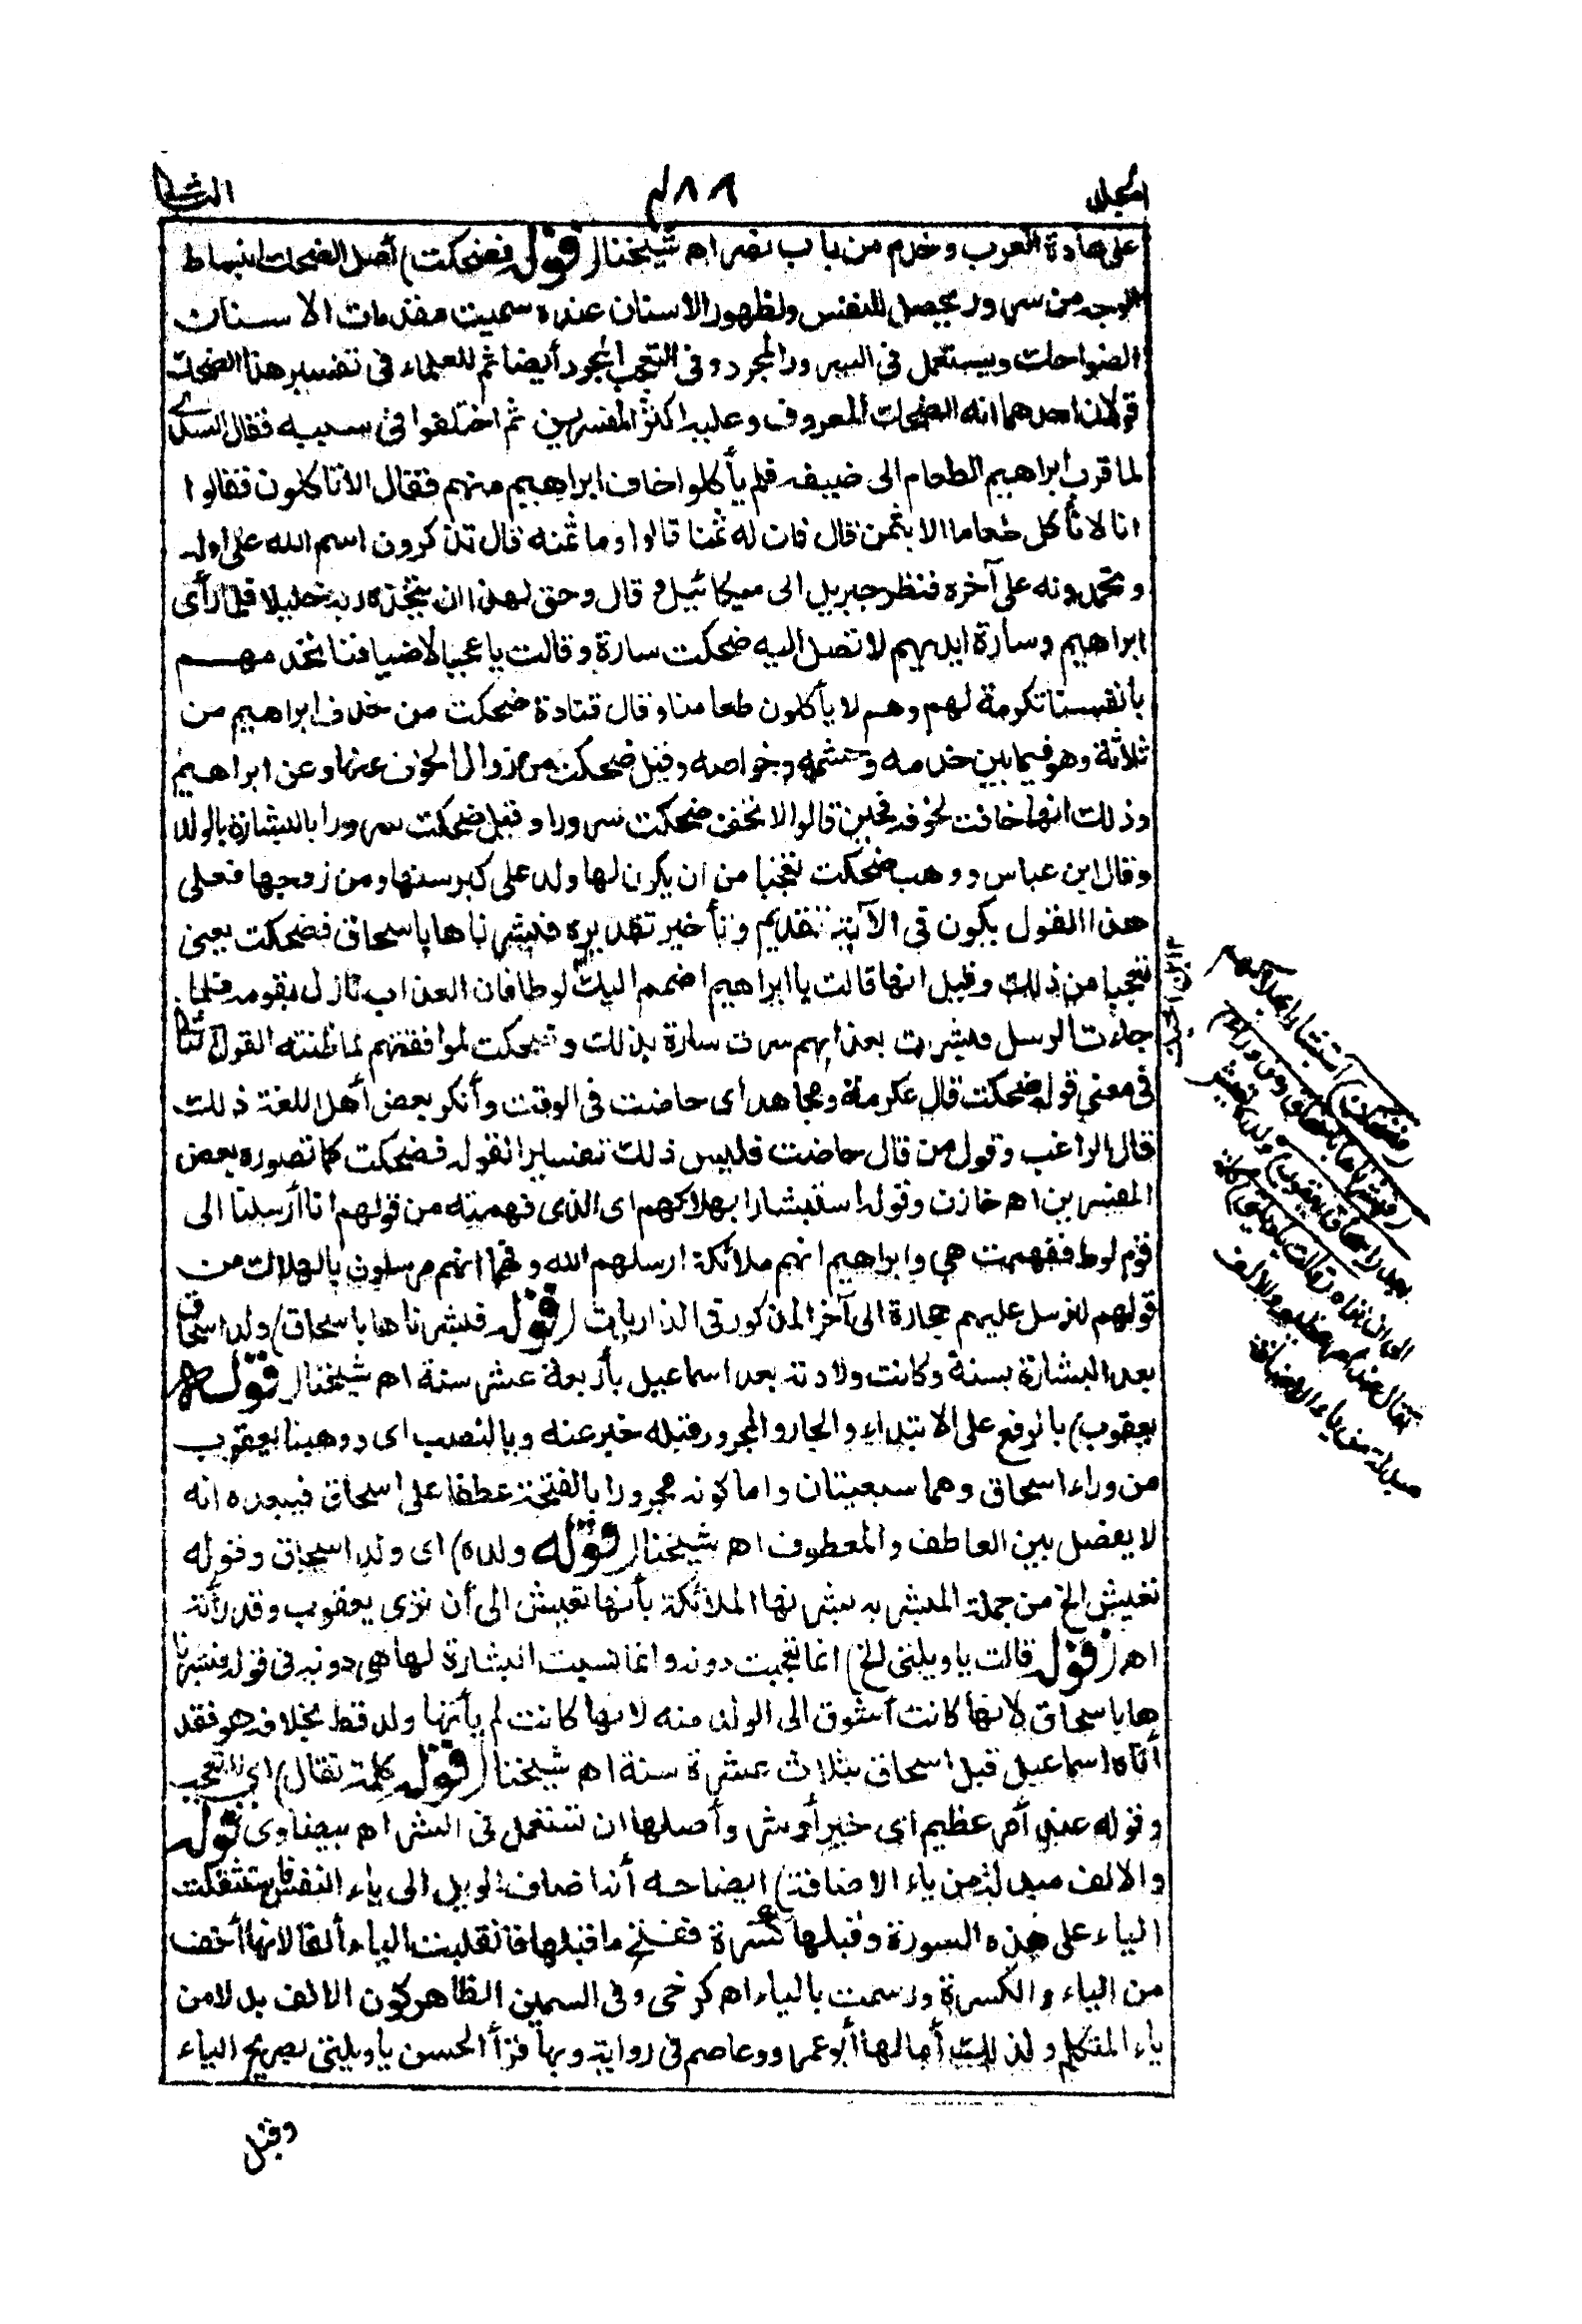 المجلد ٤٨٨ الثانى
على عادة العرب وخدم من باب نصر اه شيخنا (قوله فضحكت) أصل الضحك انبساط
الوجه من سرور يحصل للنفس ولظهور الاسنان عنده سميت مقدمات الاسنان
الضواحك ويستعمل فى السرور المجرد وفى التعجب المجرد أيضا ثم للعلماء فى تفسير هذا الضحك
قولان احدهما انه الضحك المعروف وعليه اكثر المفسرين ثم اختلفوا فى سببه فقال السدى
لما قرب ابراهيم الطعام الى ضيفه فلم يأكلوا خاف ابراهيم منهم فقال الا تاكلون فقالوا
انا لا نأكل طعاما الا بثمن قال فان له ثمنا قالوا وما ثمنه قال تذكرون اسم الله على اوله
وتحمدونه على آخره فنظر جبريل الى ميكائيل وقال وحق لهذا ان يتخذه ربه خليلا فلما رأى
ابراهيم وسارة ايديهم لا تصل اليه ضحكت سارة وقالت يا عجبا لاضيافنا نخدمهم
بأنفسنا تكرمة لهم وهم لا يأكلون طعامنا وقال قتادة ضحكت من خوف ابراهيم من
ثلاثة وهو فيما بين خدمه وحشمه وخواصه وقيل ضحكت من زوال الخوف عنها وعن ابراهيم
وذلك انها خافت لخوفه فحين قالوا لا تخف ضحكت سرورا وقيل ضحكت سرورا بالبشارة بالولد
وقال ابن عباس ووهب ضحكت تعجبا من ان يكون لها ولد على كبر سنها ومن زوجها فعلى
هذا القول يكون فى الآية تقديم وتأخير تقديره فبشرناها باسحاق فضحكت يعنى
تعجبا من ذلك وقيل انها قالت يا ابراهيم اضمم اليك لوطا فان العذاب نازل بقومه فلما
جاءت الرسل وبشرت بعذابهم سرت سارة بذلك وضحكت لموافقتهم لما ظنته القول الثانى
فى معنى قوله ضحكت قال عكرمة ومجاهد اى حاضت فى الوقت وأنكر بعض أهل اللغة ذلك
قال الراغب وقول من قال حاضت فليس ذلك تفسيرا لقوله فضحكت كما تصوره بعض
المفسرين اه خازن وقوله استبشارا بهلاكهم اى الذى فهمته من قولهم انا أرسلنا الى
قوم لوط ففهمت هى وابراهيم انهم ملائكة ارسلهم الله وفهما انهم مرسلون بالهلاك من
قولهم لنرسل عليهم حجارة الى آخر المذكور فى الذاريات (قوله فبشرناها باسحاق) ولد اسحاق
بعد البشارة بسنة وكانت ولادته بعد اسماعيل بأربعة عشر سنة اه شيخنا (قوله
يعقوب) بالرفع على الابتداء والجار والمجرور قبله خبر عنه وبالنصب اى ووهبنا يعقوب
من وراء اسحاق وهما سبعيتان واما كونه مجرورا بالفتحة عطفا على اسحاق فيبعده انه
لا يفصل بين العاطف والمعطوف اه شيخنا (قوله ولده) اى ولد اسحاق وقوله
تعيش الخ من جملة المبشر به بشرتها الملائكة بأنها تعيش الى أن ترى يعقوب وقد رأته
اه (قوله قالت يا ويلتى الخ) انما تعجبت دونه وانما نسبت البشارة لها هى دونه فى قوله فبشرنا
ها باسحاق لانها كانت أشوق الى الولد منه لانها كانت لم يأتها ولد قط بخلافه هو فقد
أتاه اسماعيل قبل اسحاق بثلاث عشرة سنة اه شيخنا (قوله كلمة تقال) اى للتعجب
وقوله عند أمر عظيم اى خير أو شر وأصلها ان تستعمل فى الشر اه بيضاوى (قوله
والالف مبدلة من ياء الاضافة) ايضاحه أنه اضاف الويل الى ياء النفس فاستثقلت
الياء على هذه الصورة وقبلها كسرة ففتح ما قبلها فانقلبت الياء ألفا لانها أخف
من الياء والكسرة ورسمت بالياء اه كرخى وفى السمين الظاهر كون الالف بدلا من
ياء المتكلم ولذلك أمالها أبو عمرو وعاصم فى رواية وبها قرأ الحسن يا ويلتى بصريح الياء
وقيل
(فضحكت) استبشارا بهلاكهم
(فبشرناها باسحاق ومن وراء)
بعد (اسحاق يعقوب) ولده تعيش
الى ان تراه (قالت يا ويلتى) كلمة
تقال عند امر عظيم والالف
مبدلة من ياء الاضافة